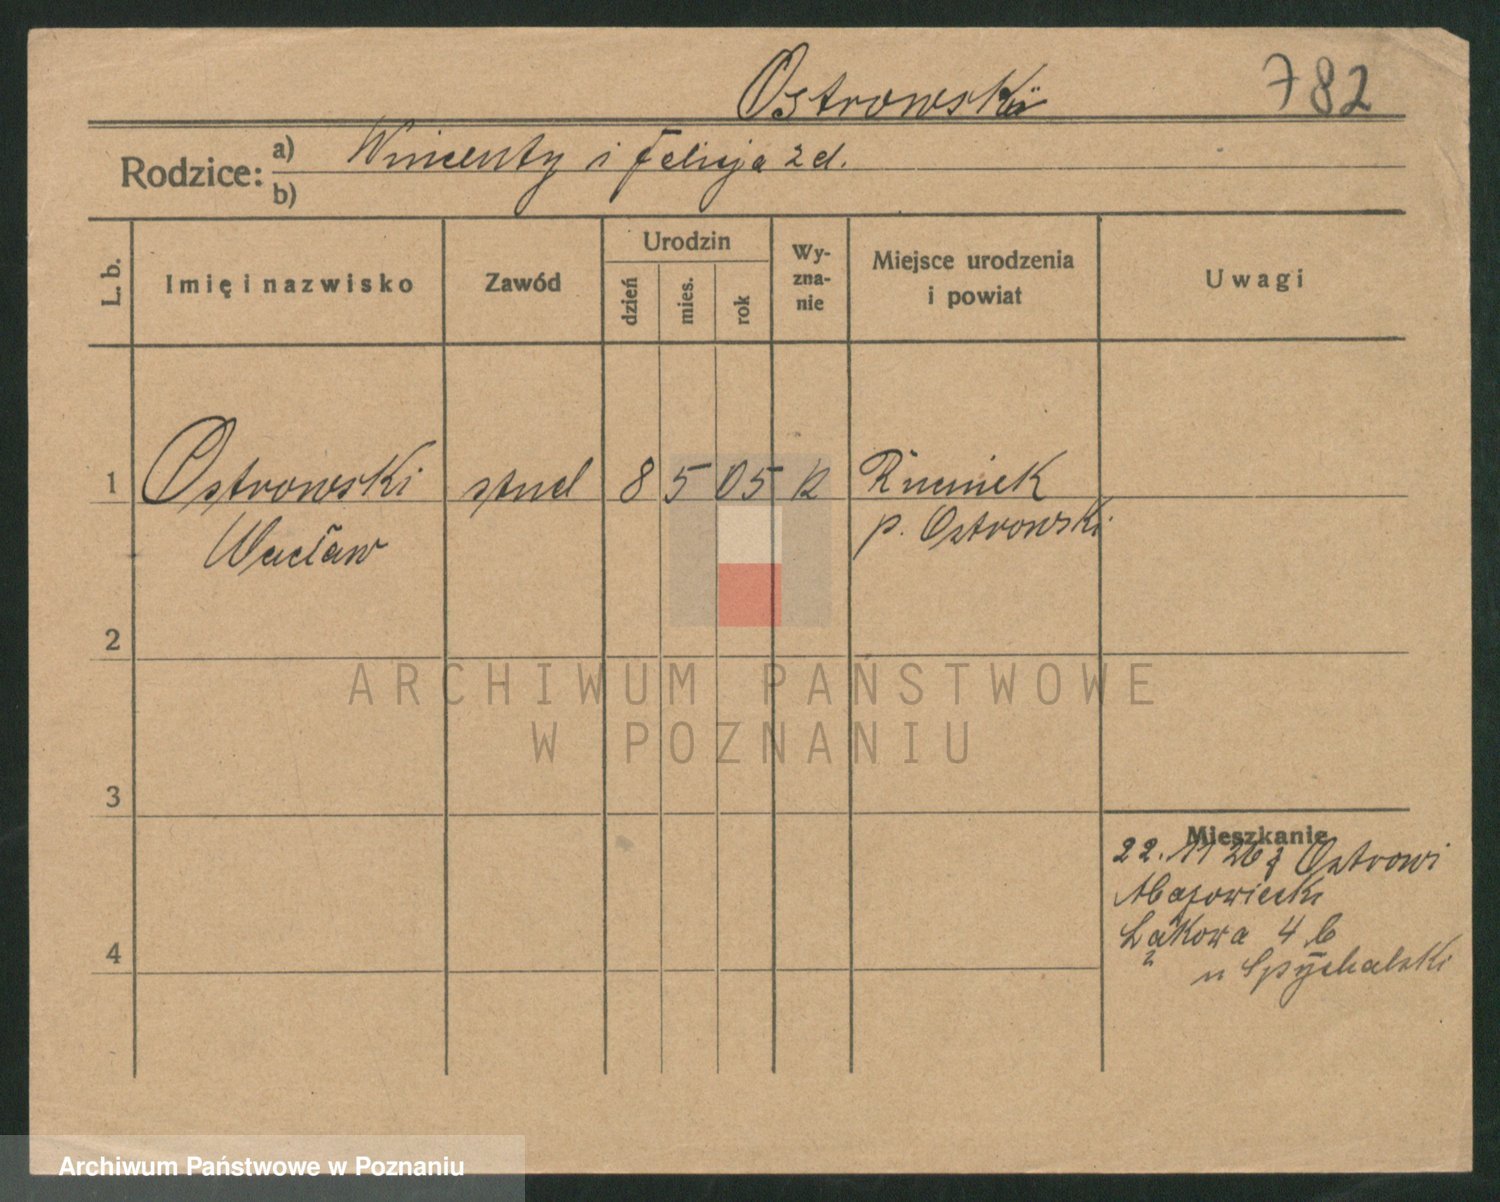 Ostrowski
782
Rodzice:
a) Wincenty i Felicja zd.
b)
L. b.
Imię i nazwisko
Zawód
Urodzin
dzień
mies.
rok
Wy-
zna-
nie
Miejsce urodzenia
i powiat
Uwagi
1 Ostrowski stud 8 5 05 R
Wacław p. Ostrowski
2
3
4
Mieszkanie
22.11 26 z Ostrowi
Mazowiecki
Łąkowa 4 b
u Spychalski
ARCHIWUM PAŃSTWOWE
W POZNANIU
Archiwum Państwowe w Poznaniu